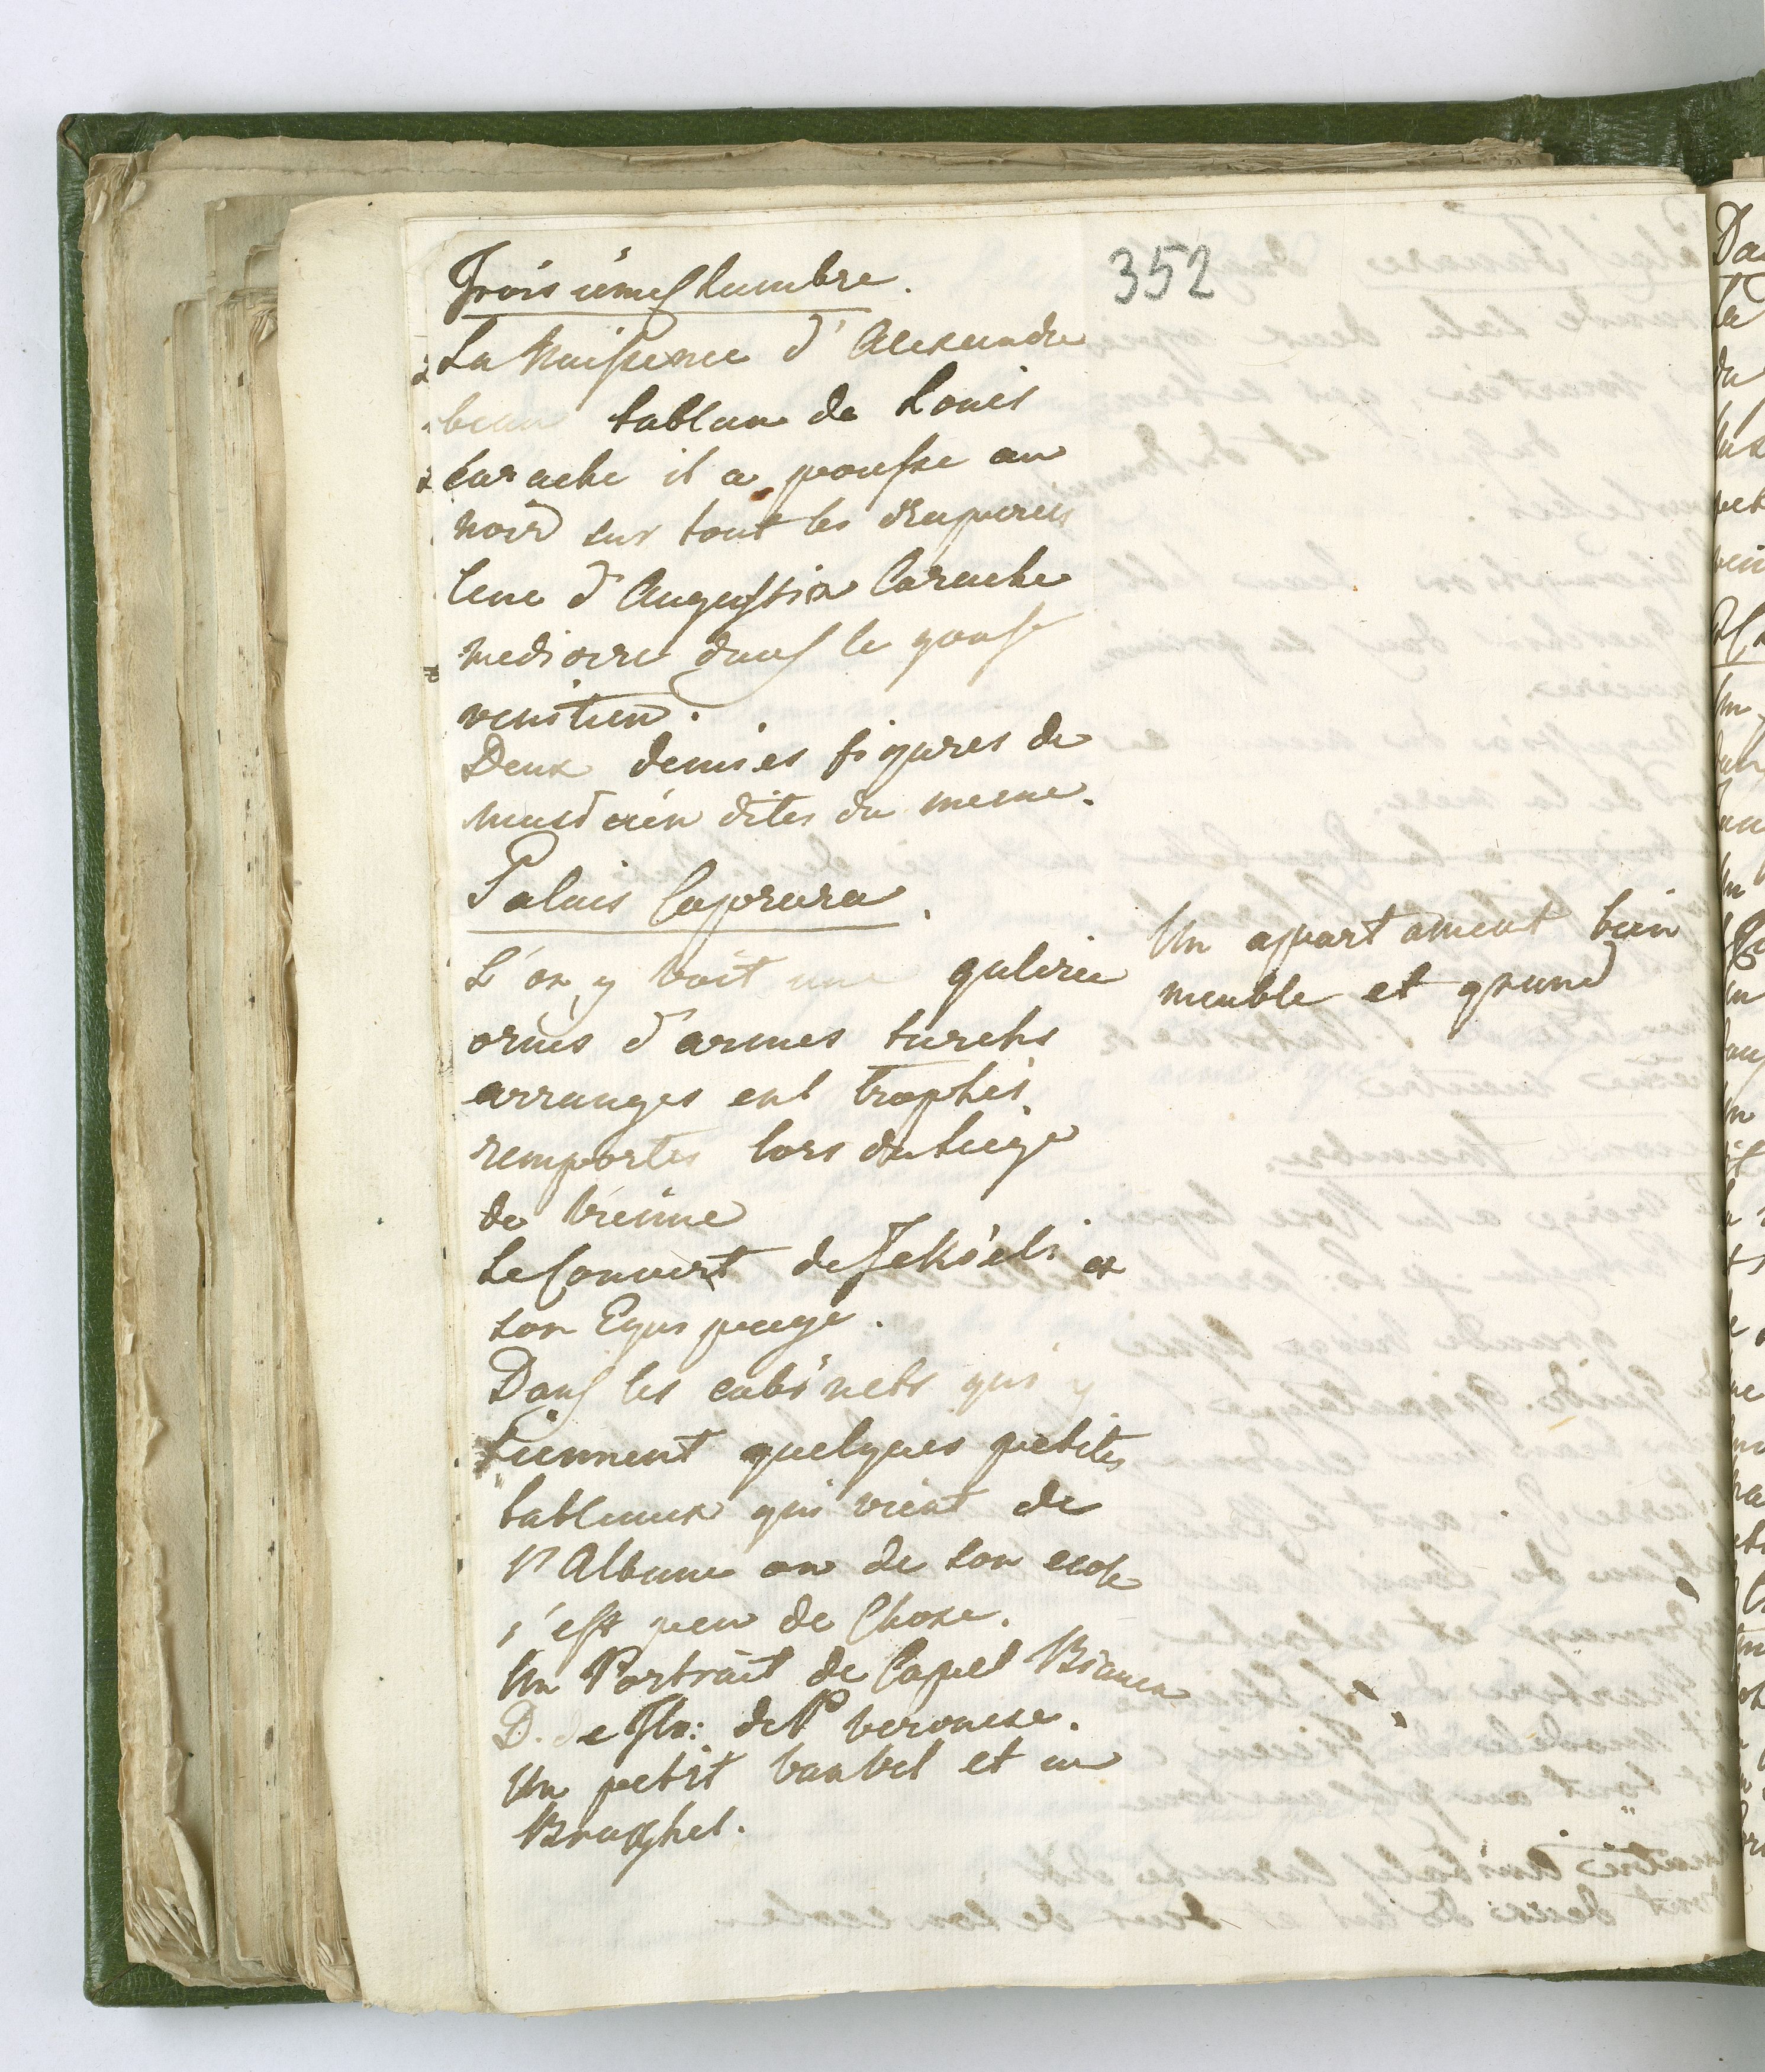 352
Troisiême Chambre.
La Naissence d'Alexandre
beau tableau de Louis
Carache il a pousse au
noir sur tout les draperies
Cene d'Augustin Carache
mediocre dans le goust
venitien.
Deux demies figures de
musicien dites du meme.
Palais Caprara.
L'on y voit une galerie
ornés d'armes turchs
arranges ent trophés
remportes lors du siege
de Vienne
Le Couvert de Tekóeli et
son Equipage.
Dans les cabinets qui y
tiennent quelques petites
tableaux qui vient de
l'Albane ou de son ecole
s'est peu de Chose.
Un Portrait de Capel Bianca
D. de Flo: de P veronese.
Un petit banbel et un
Brughel.
Un apartament bien
meuble et grand